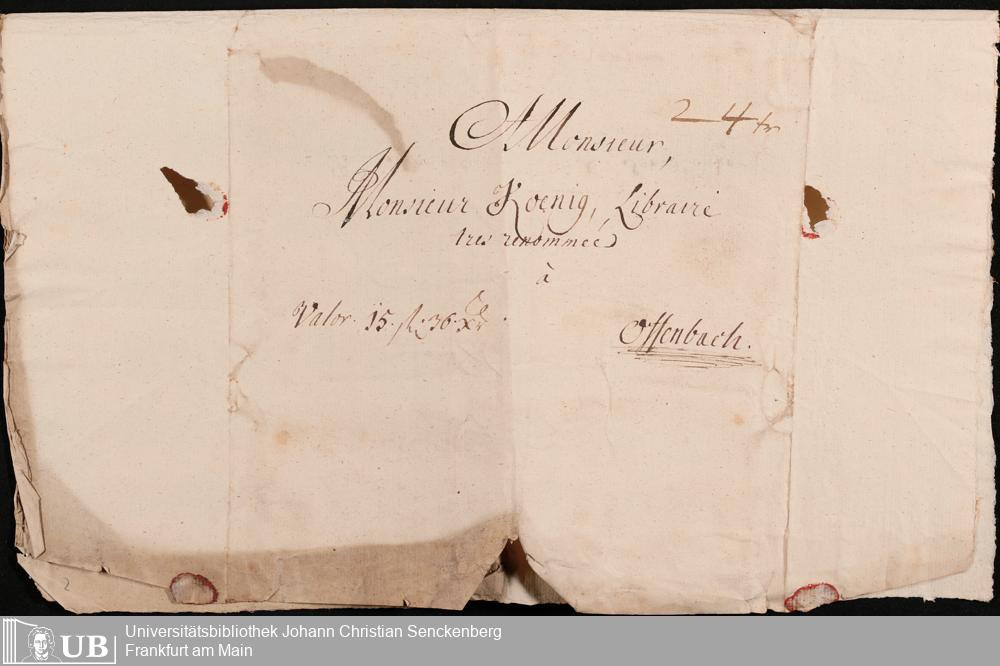 A Monsieur,
Monsieur Koenig, Libraire
tres renommeé
à
Valor. 15. fl. 36. Xr
Offenbach.
2
UB
Universitätsbibliothek Johann Christian Senckenberg
Frankfurt am Main